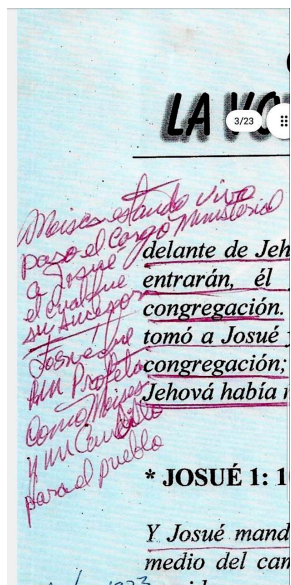 LA VO
3/23
Moises estando vivo
paso el Cargo Ministerial
a Josue
el cual fue
su sucesor
Josue fue
un Profeta
Como Moises
y un Caudillo
para el pueblo
delante de Jeh
entrarán, él
congregación.
tomó a Josué y
congregación;
Jehová había
* JOSUÉ 1: 1
Y Josué mand
medio del cam